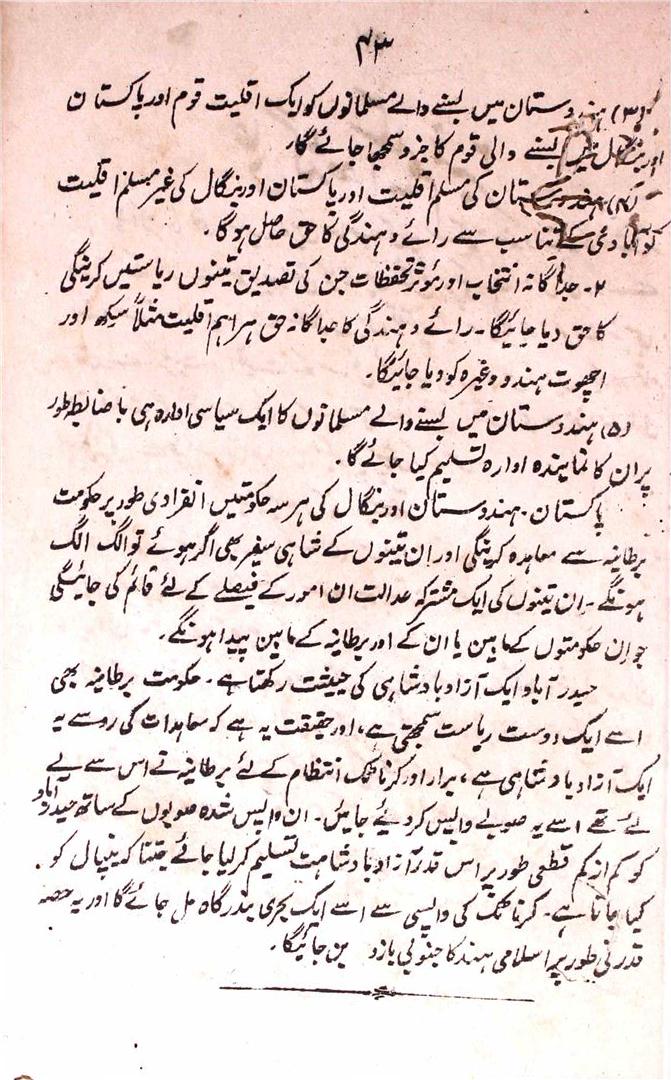 ۴۳
(۳) ہندوستان میں بسنے والے مسلمانوں کو ایک اقلیت قوم اور پاکستان
اور بنگال میں بسنے والی قوم کا جزو سمجھا جائے گا۔
(۴) ہندوستان کی مسلم اقلیت اور پاکستان اور بنگال کی غیر مسلم اقلیت
کو آبادی کے تناسب سے رائے دہندگی کا حق حاصل ہوگا۔
۲۔ جداگانہ انتخاب اور مؤثر تحفظات جن کی تصدیق تینوں ریاستیں کرینگی
کا حق دیا جائیگا۔ رائے دہندگی کا جداگانہ حق ہر اہم اقلیت مثلاً سکھ اور
اچھوت ہندو وغیرہ کو دیا جائیگا۔
(۵) ہندوستان میں بسنے والے مسلمانوں کا ایک سیاسی ادارہ ہی باضابطہ طور
پر ان کا نمایندہ ادارہ تسلیم کیا جائے گا۔
پاکستان۔ ہندوستان اور بنگال کی ہر سہ حکومتیں انفرادی طور پر حکومت
برطانیہ سے معاہدہ کرینگی اور ان تینوں کے شاہی سفیر بھی اگر ہوئے تو الگ الگ
ہونگے۔ ان تینوں کی ایک مشترکہ عدالت ان امور کے فیصلے کے لئے قائم کی جائیگی
جو ان حکومتوں کے مابین یا ان کے اور برطانیہ کے مابین پیدا ہونگے۔
حیدرآباد ایک آزاد بادشاہی کی حیثیت رکھتا ہے۔ حکومت برطانیہ بھی
اسے ایک دوست ریاست سمجھتی ہے، اور حقیقت یہ ہے کہ معاہدات کی رو سے یہ
ایک آزاد بادشاہی ہے، برار اور کرناٹک انتظام کے لئے برطانیہ نے اس سے لے
لئے تھے اسے یہ صوبے واپس کر دیئے جائیں۔ ان واپس شدہ صوبوں کے ساتھ حیدرآباد
کو کم از کم قطعی طور پر اس قدر آزاد بادشاہت تسلیم کر لیا جائے جتنا کہ نیپال کو
کیا جاتا ہے۔ کرناٹک کی واپسی سے اسے ایک بحری بندرگاہ مل جائے گا اور یہ حصہ
قدرتی طور پر اسلامی ہند کا جنوبی بازو بن جائیگا۔